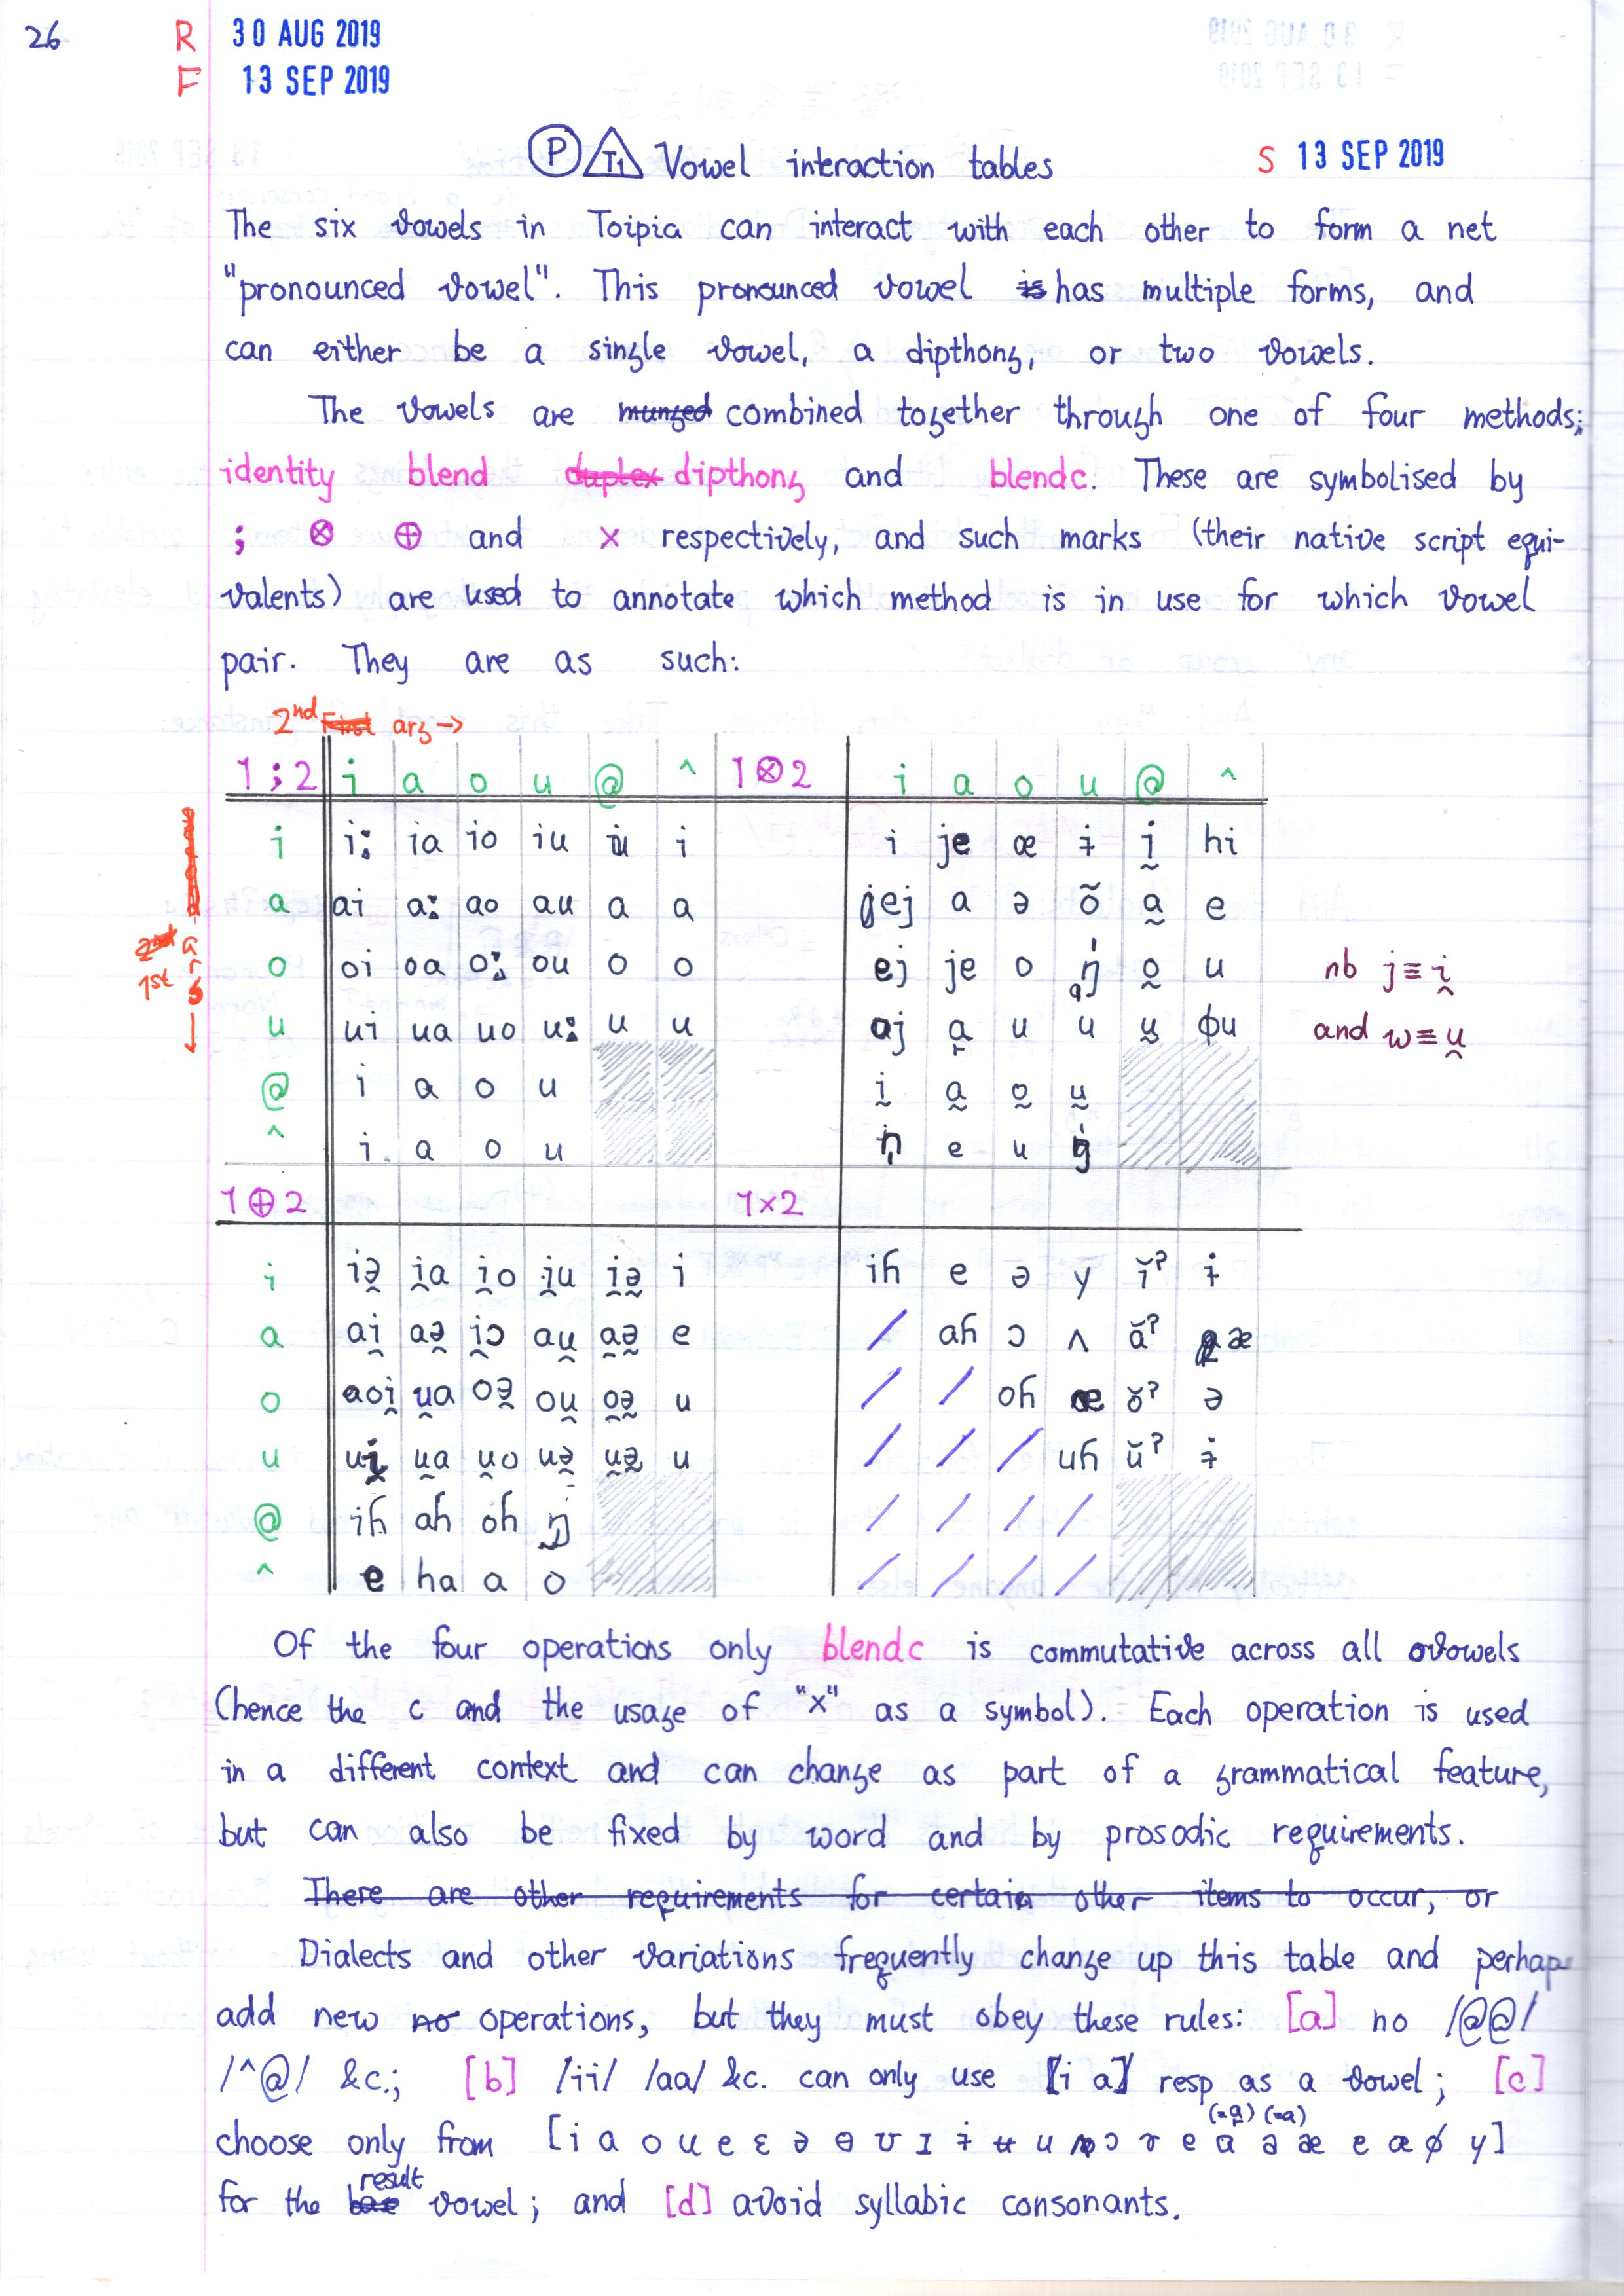 26
R 30 AUG 2019
F 13 SEP 2019
P T1 Vowel interaction tables S 13 SEP 2019
The six vowels in Toipia can interact with each other to form a net
"pronounced vowel". This pronounced vowel is has multiple forms, and
can either be a single vowel, a dipthong, or two vowels.
The vowels are munged combined together through one of four methods;
identity blend duplex dipthong and blendc. These are symbolised by
; ⊗ ⊕ and × respectively, and such marks (their native script equi-
valents) are used to annotate which method is in use for which vowel
pair. They are as such:
2nd First arg →
1;2 i a o u @ ^ 1⊗2 i a o u @ ^
i iː ia io iu i i je œ ɨ ḭ hi
a ai aː ao au a a jej a ə õ a̰ e
2nd arg
1st
o oi oa oː ou o o ej je o o̰ u nb j≡i̯
u ui ua uo uː u u aj u u ṵ ɸu and w≡u̯
@ i a o u ḭ a̰ o̰ ṵ
^ i a o u e u
1⊕2 1×2
i iə̯ i̯a i̯o i̯u i̯ə̰ i iɦ e ə y ĭˀ ɨ
a ai̯ aə̯ i̯ɔ au̯ a̯ə̰ e / aɦ ɔ ʌ ăˀ æ
o aoi̯ u̯a oə̯ ou̯ o̯ə̰ u / / oɦ œ ŏˀ ə
u ui̯ u̯a u̯o uə̯ u̯ə̰ u / / / uɦ ŭˀ ɨ
@ iɦ aɦ oɦ / / / /
^ e ha a o / / / /
Of the four operations only blendc is commutative across all vowels
(hence the c and the usage of "x" as a symbol). Each operation is used
in a different context and can change as part of a grammatical feature,
but can also be fixed by word and by prosodic requirements.
There are other requirements for certain other items to occur, or
Dialects and other variations frequently change up this table and perhaps
add new no operations, but they must obey these rules: [a] no /@@/
/^@/ &c.; [b] /ii/ /aa/ &c. can only use [i a] resp as a vowel; [c]
choose only from [i a o u e ɛ ə ɵ ʊ ɪ ɨ ʉ ɯ ɔ ɤ ɐ æ œ ø y]
for the result vowel; and [d] avoid syllabic consonants.